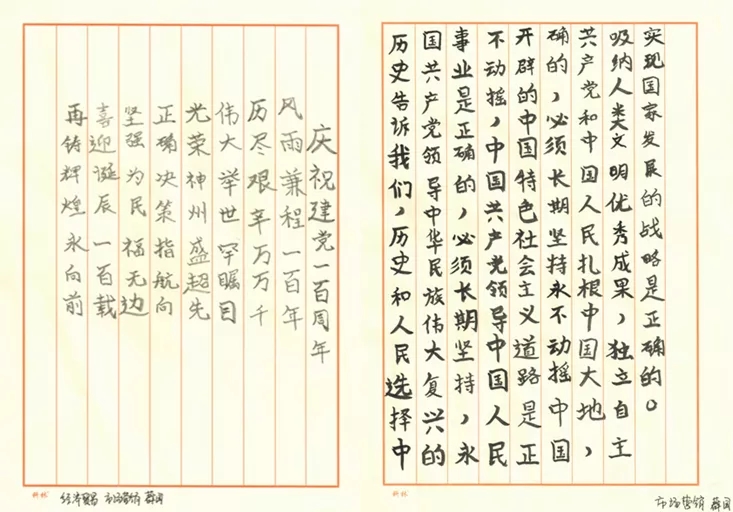 庆祝建党一百周年
风雨兼程一百年
历尽艰辛万万千
伟大举世罕瞩目
光荣神州盛超先
正确决策指航向
坚强为民福无边
喜迎诞辰一百载
再铸辉煌永向前
市场营销
历史告诉我们，历史和人民选择中
国共产党领导中华民族伟大复兴的
事业是正确的，必须长期坚持，永
不动摇，中国共产党领导中国人民
开辟的中国特色社会主义道路是正
确的，必须长期坚持永不动摇中国
共产党和中国人民扎根中国大地，
吸纳人类文明优秀成果，独立自主
实现国家发展的战略是正确的。
市场营销